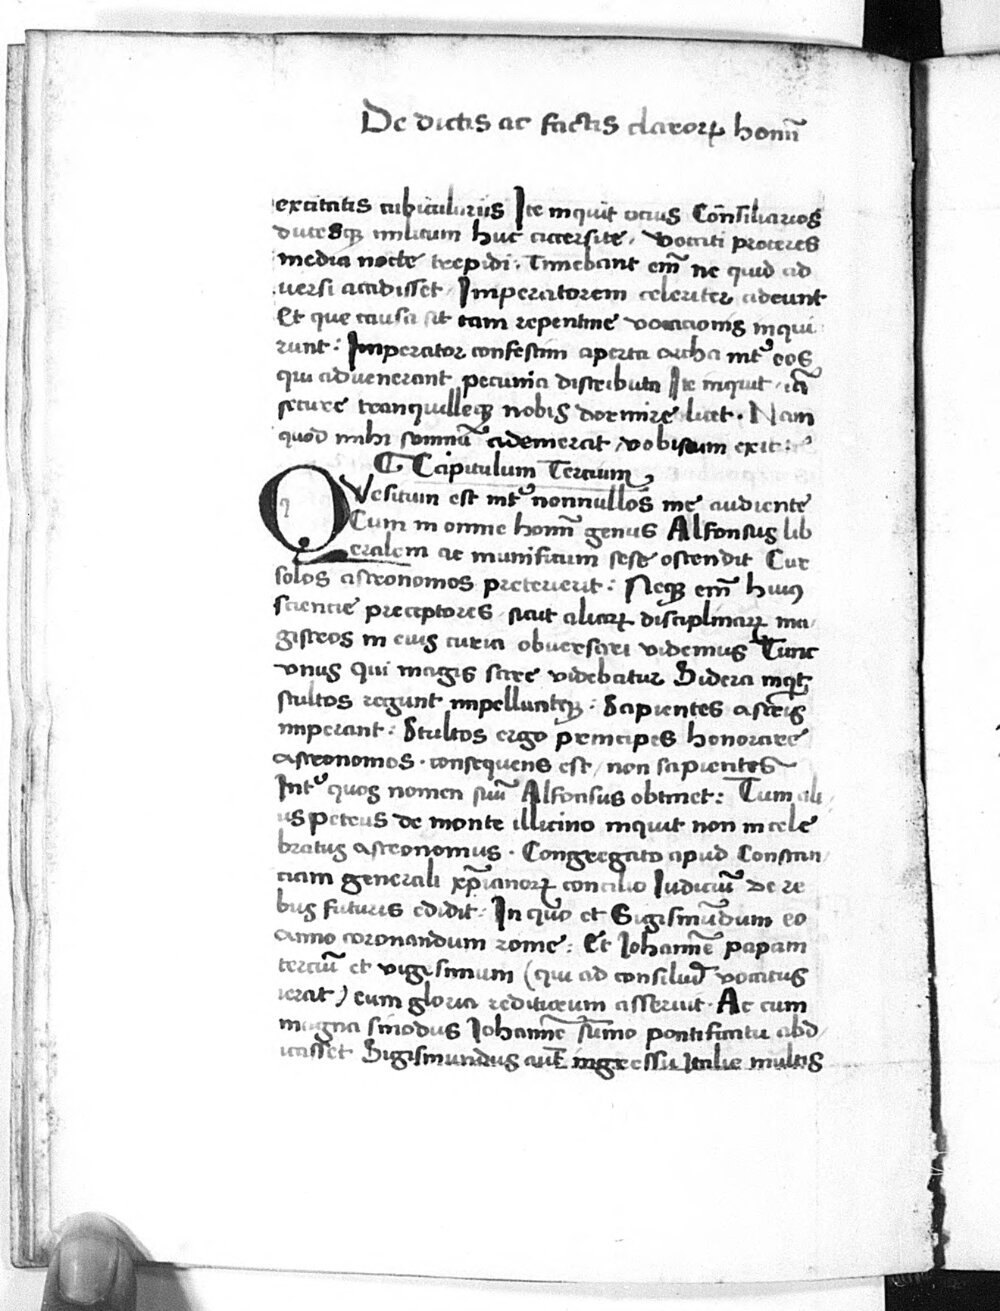 De dictis ac factis claroꝝ homī
excitatis cubiculariis Ite inquit ocius Cōnsiliarios
ducesqꝫ militum huc accersite / vocati proceres
media nocte trepidi · Timebant em̄ ne quid ad
uersi accidisset / Imperatorem celeriter adeunt
Et que causa sit tam repentine vocacionis inqui
runt : Imperator confestim aperta archa int᷒ eos
qui aduenerant pecunia distributa Ite inquit iā
secure tranquilleqꝫ nobis dormire licet · Nam
quod mihi somnū ademerat / vobiscum exit
₵ Capitulum Tercium
QVesitum est int᷒ nonnullos me audiente
Cum in omne homī genus Alfonsus lib
eralem ac munificum sese ostendit Cur
solos astronomos preterierit : Neqꝫ em̄ huiꝯ
sciencie preceptores / sicut aliaꝝ disciplinaꝝ ma
gistros in eius curia obuersari videmus Tunc
vnus qui magis scire videbatur Sidera inqͥt
stultos regunt impelluntqꝫ : Sapientes astris
imperant : Stultos ergo principes honorare
astronomos · consequens est / non sapientes
Int᷒ quos nomen suū Alfonsus obtinet : Tum ali
us petrus de monte illicino inquit non incele
bratus astronomus · Congregato apud Constan
ciam generali xp̄ianoꝝ concilio Iudiciū de re
bus futuris edidit : In quo et Sigismūdum eo
anno coronandum rome : Et Iohannē papam
terciū et vigesimum ( qui ad consiliū vocatus
ierat ) cum gloria rediturum asseruit · Ac cum
magna sinodus Iohannē sūmo pontificatu abd
icasset Sigismundus aut̄ ingressu Italie multis